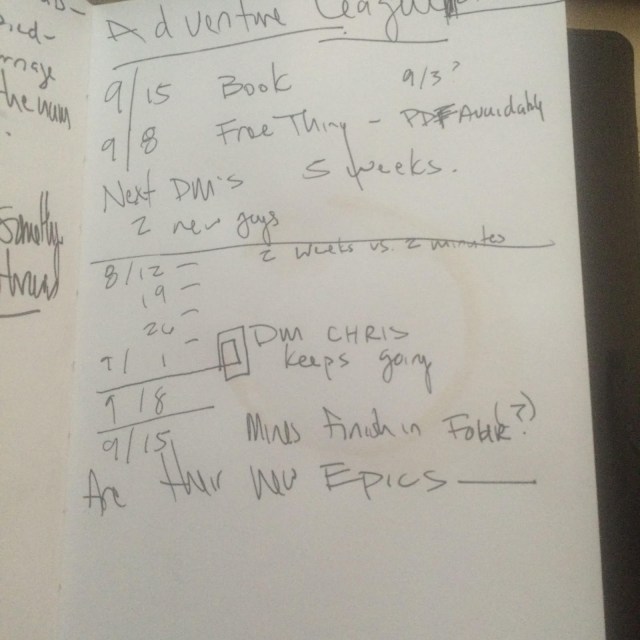 Adventure League
9/15 Book 9/3?
9/8 Free Thing - PDF Availably
Next DM's 5 weeks.
2 new guys
2 weeks vs. 2 minutes
8/12 -
19 -
26 -
9/1 - DM CHRIS
keeps going
9/8
9/15 Mines finish in
Are their new EPICS
ed-
the mum
Smelly
thrus